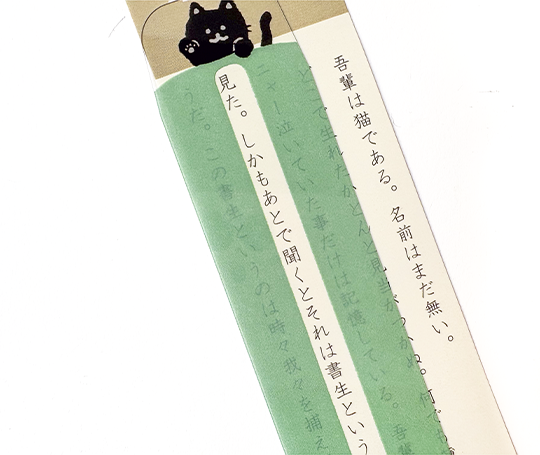 吾輩は猫である。名前はまだ無い。
どこで生れたかとんと見当がつかぬ。何でも
ニャー泣いていた事だけは記憶している。吾輩
見た。しかもあとで聞くとそれは書生という
うだ。この書生というのは時々我々を捕え